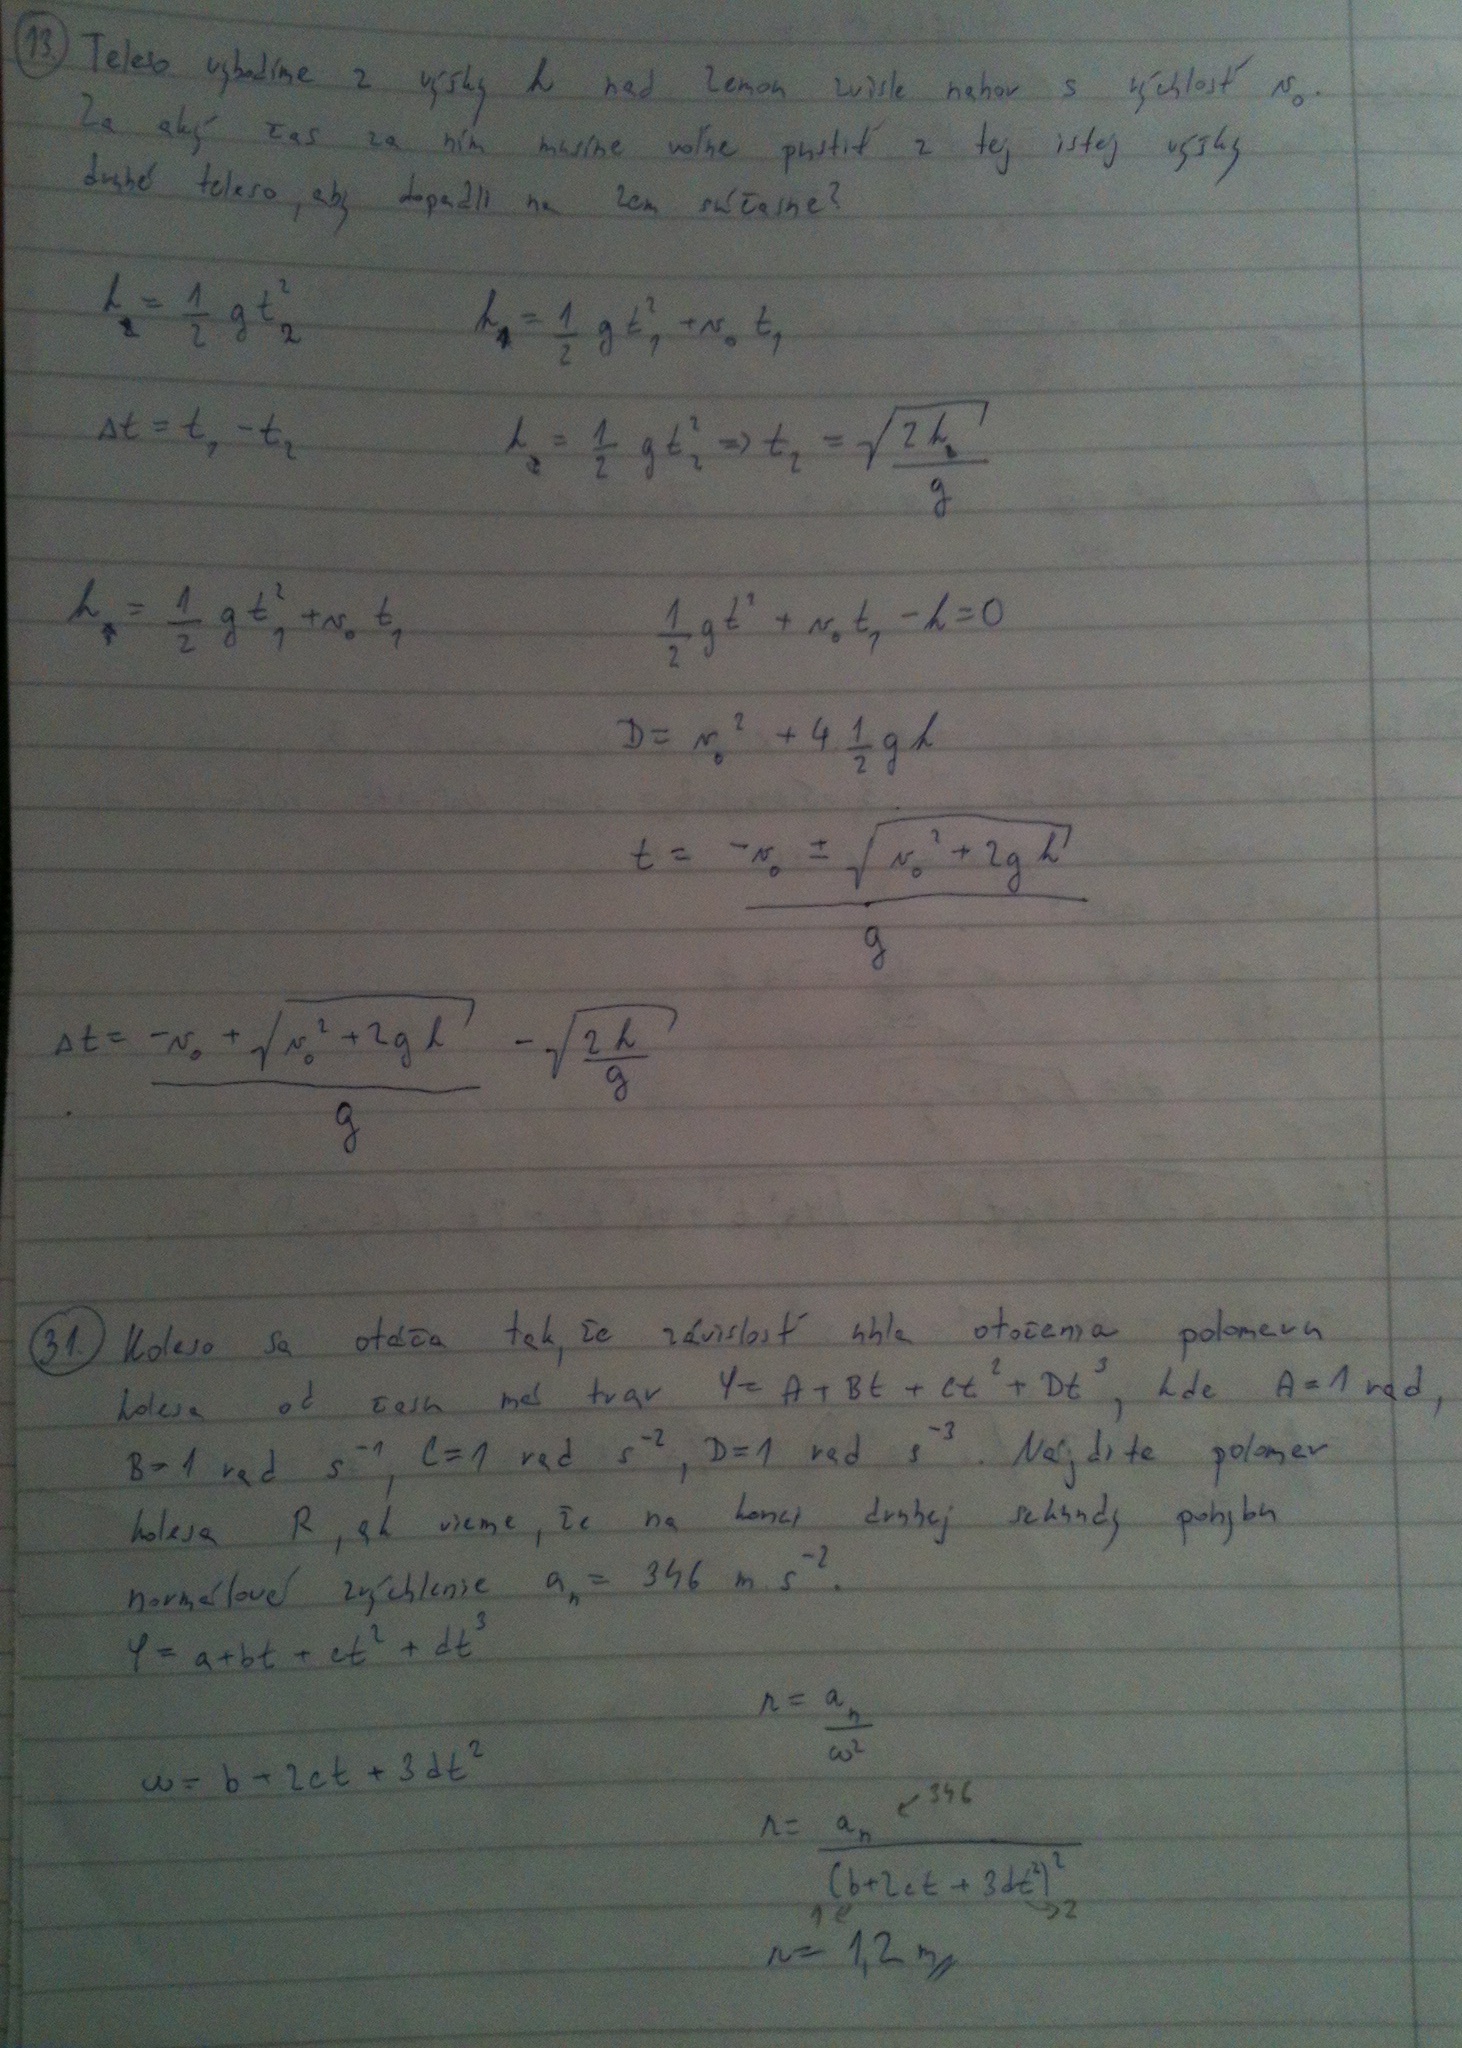 13. Teleso vyhodíme z výšky h nad Zemou zvisle nahor s rýchlosť v₀.
Za aký čas za ním musíme voľne pustiť z tej istej výšky
druhé teleso, aby dopadli na zem súčasne?
h₂ = 1/2 g t₂² h₁ = 1/2 g t₁² + v₀ t₁
Δt = t₁ - t₂ h₂ = 1/2 g t₂² => t₂ = √(2h₂/g)
h₁ = 1/2 g t₁² + v₀ t₁ 1/2 g t² + v₀ t₁ - h = 0
D = v₀² + 4 1/2 g h
t = (-v₀ ± √(v₀² + 2gh))/g
Δt = (-v₀ + √(v₀² + 2gh))/g - √(2h/g)
31. Koleso sa otáča tak, že závislosť uhla otočenia polomeru
kolesa od času má tvar φ = A + Bt + Ct² + Dt³, kde A = 1 rad,
B = 1 rad s⁻¹, C = 1 rad s⁻², D = 1 rad s⁻³. Nájdite polomer
kolesa R, ak vieme, že na konci druhej sekundy pohybu
normálové zrýchlenie aₙ = 346 m s⁻².
φ = a + bt + ct² + dt³
r = aₙ/ω²
ω = b + 2ct + 3dt²
↙ 346
r = aₙ/(b + 2ct + 3dt²)²
1 ↙ → 2
r = 1,2 m